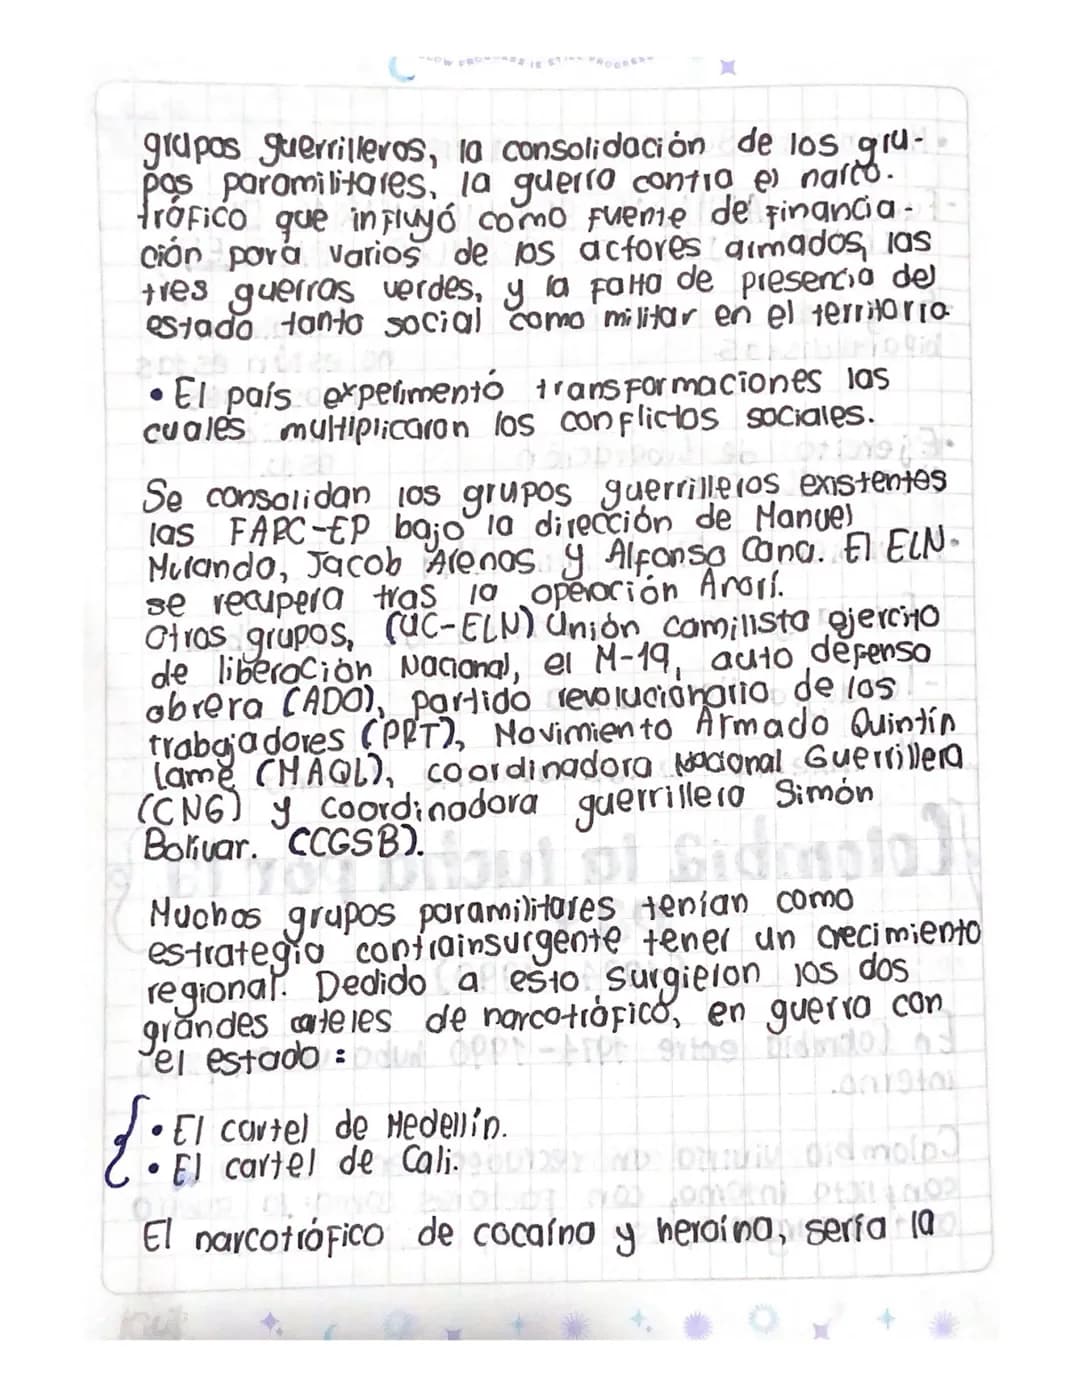 SLOW PROGRESS IS STILL PROGRESS
grupos guerrilleros, la consolidación de los gru-
pos paramilitares, la guerra contra el narco-
tráfico que influyó como fuente de financia-
ción para varios de los actores armados, las
tres guerras verdes, y la falta de presencia del
estado tanto social como militar en el territorio
• El país experimentó transformaciones las
cuales multiplicaron los conflictos sociales.
Se consolidan los grupos guerrilleros existentes
las FARC-EP bajo la dirección de Manuel
Murando, Jacob Arenas y Alfonso Cano. El ELN
se recupera tras la operación Anorí.
Otros grupos, (UC-ELN) Unión camilista ejercito
de liberación Nacional, el M-19, auto defensa
obrera (ADO), partido revolucionario de los
trabajadores (PRT), Movimiento Armado Quintín
lame (MAQL), coordinadora Nacional Guerrillera
(CNG) y Coordinadora guerrillera Simón
Bolívar. (CGSB).
Muchos grupos paramilitares tenían como
estrategia contrainsurgente tener un crecimiento
regional. Dedido a esto surgieron los dos
grandes carteles de narcotráfico, en guerra con
el estado:
• El cartel de Medellín.
• El cartel de Cali.
El narcotráfico de cocaína y heroína, sería la